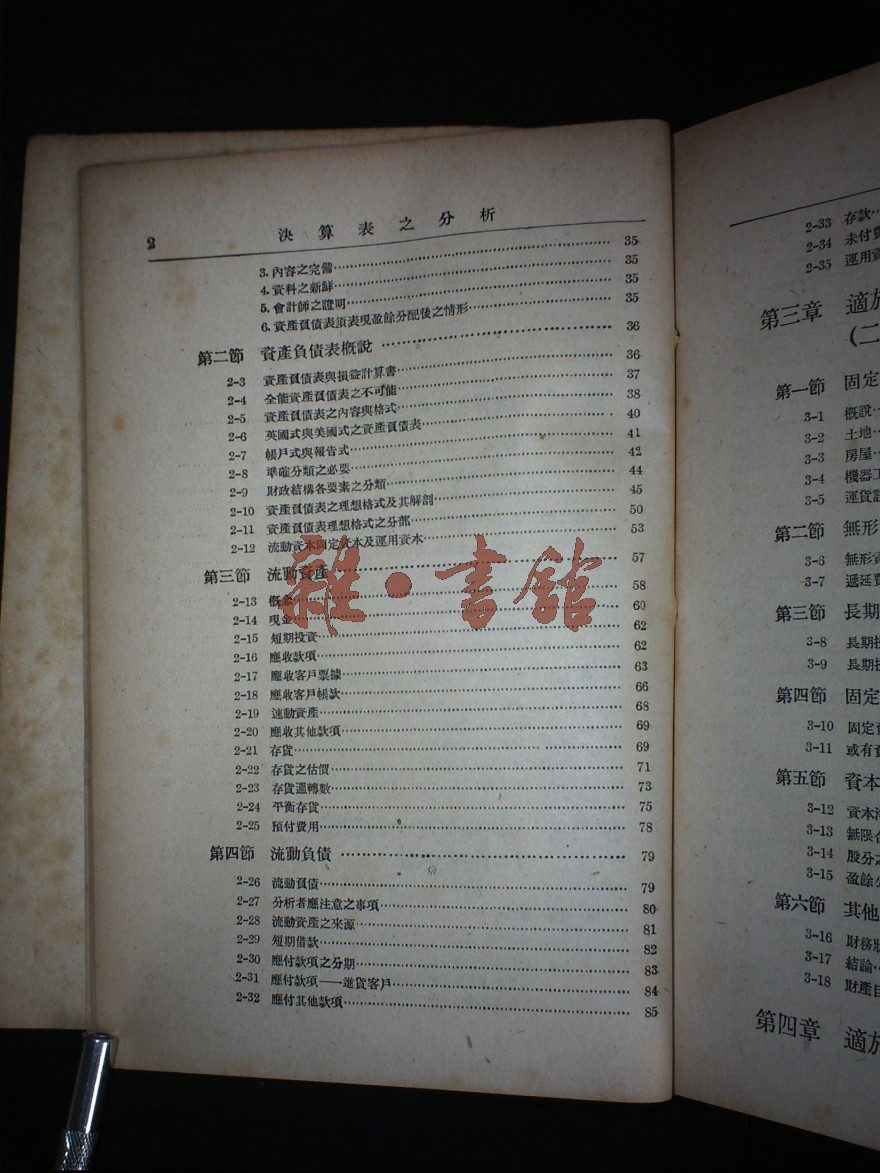 2
決算表之分析
3. 內容之完備 35
4. 資料之新鮮 35
5. 會計師之證明 35
6. 資產負債表須表現盈餘分配後之情形 35
第二節 資產負債表概說 36
2-3 資產負債表與損益計算書 36
2-4 全能資產負債表之不可能 37
2-5 資產負債表之內容與格式 38
2-6 英國式與美國式之資產負債表 40
2-7 帳戶式與報告式 41
2-8 準確分類之必要 42
2-9 財政結構各要素之分類 44
2-10 資產負債表之理想格式及其解剖 45
2-11 資產負債表理想格式之分部 50
2-12 流動資本固定資本及運用資本 53
第三節 流動資產 57
2-13 概念 58
2-14 現金 60
2-15 短期投資 62
2-16 應收款項 62
2-17 應收客戶票據 63
2-18 應收客戶帳款 66
2-19 速動資產 68
2-20 應收其他款項 69
2-21 存貨 69
2-22 存貨之估價 71
2-23 存貨週轉數 73
2-24 平衡存貨 75
2-25 預付費用 78
第四節 流動負債 79
2-26 流動負債 79
2-27 分析者應注意之事項 80
2-28 流動資產之來源 81
2-29 短期借款 82
2-30 應付款項之分期 83
2-31 應付款項——進貨客戶 84
2-32 應付其他款項 85
雜·書館
2-33 存款
2-34 未付費
2-35 運用資
第三章 適於
(二
第一節 固定
3-1 概說
3-2 土地
3-3 房屋
3-4 機器工
3-5 運貨設
第二節 無形
3-6 無形資
3-7 遞延費
第三節 長期
3-8 長期投
3-9 長期
第四節 固定
3-10 固定資
3-11 或有資
第五節 資本
3-12 資本
3-13 無限公
3-14 股分
3-15 盈餘公
第六節 其他
3-16 財務狀
3-17 結論
3-18 財產目
第四章 適於